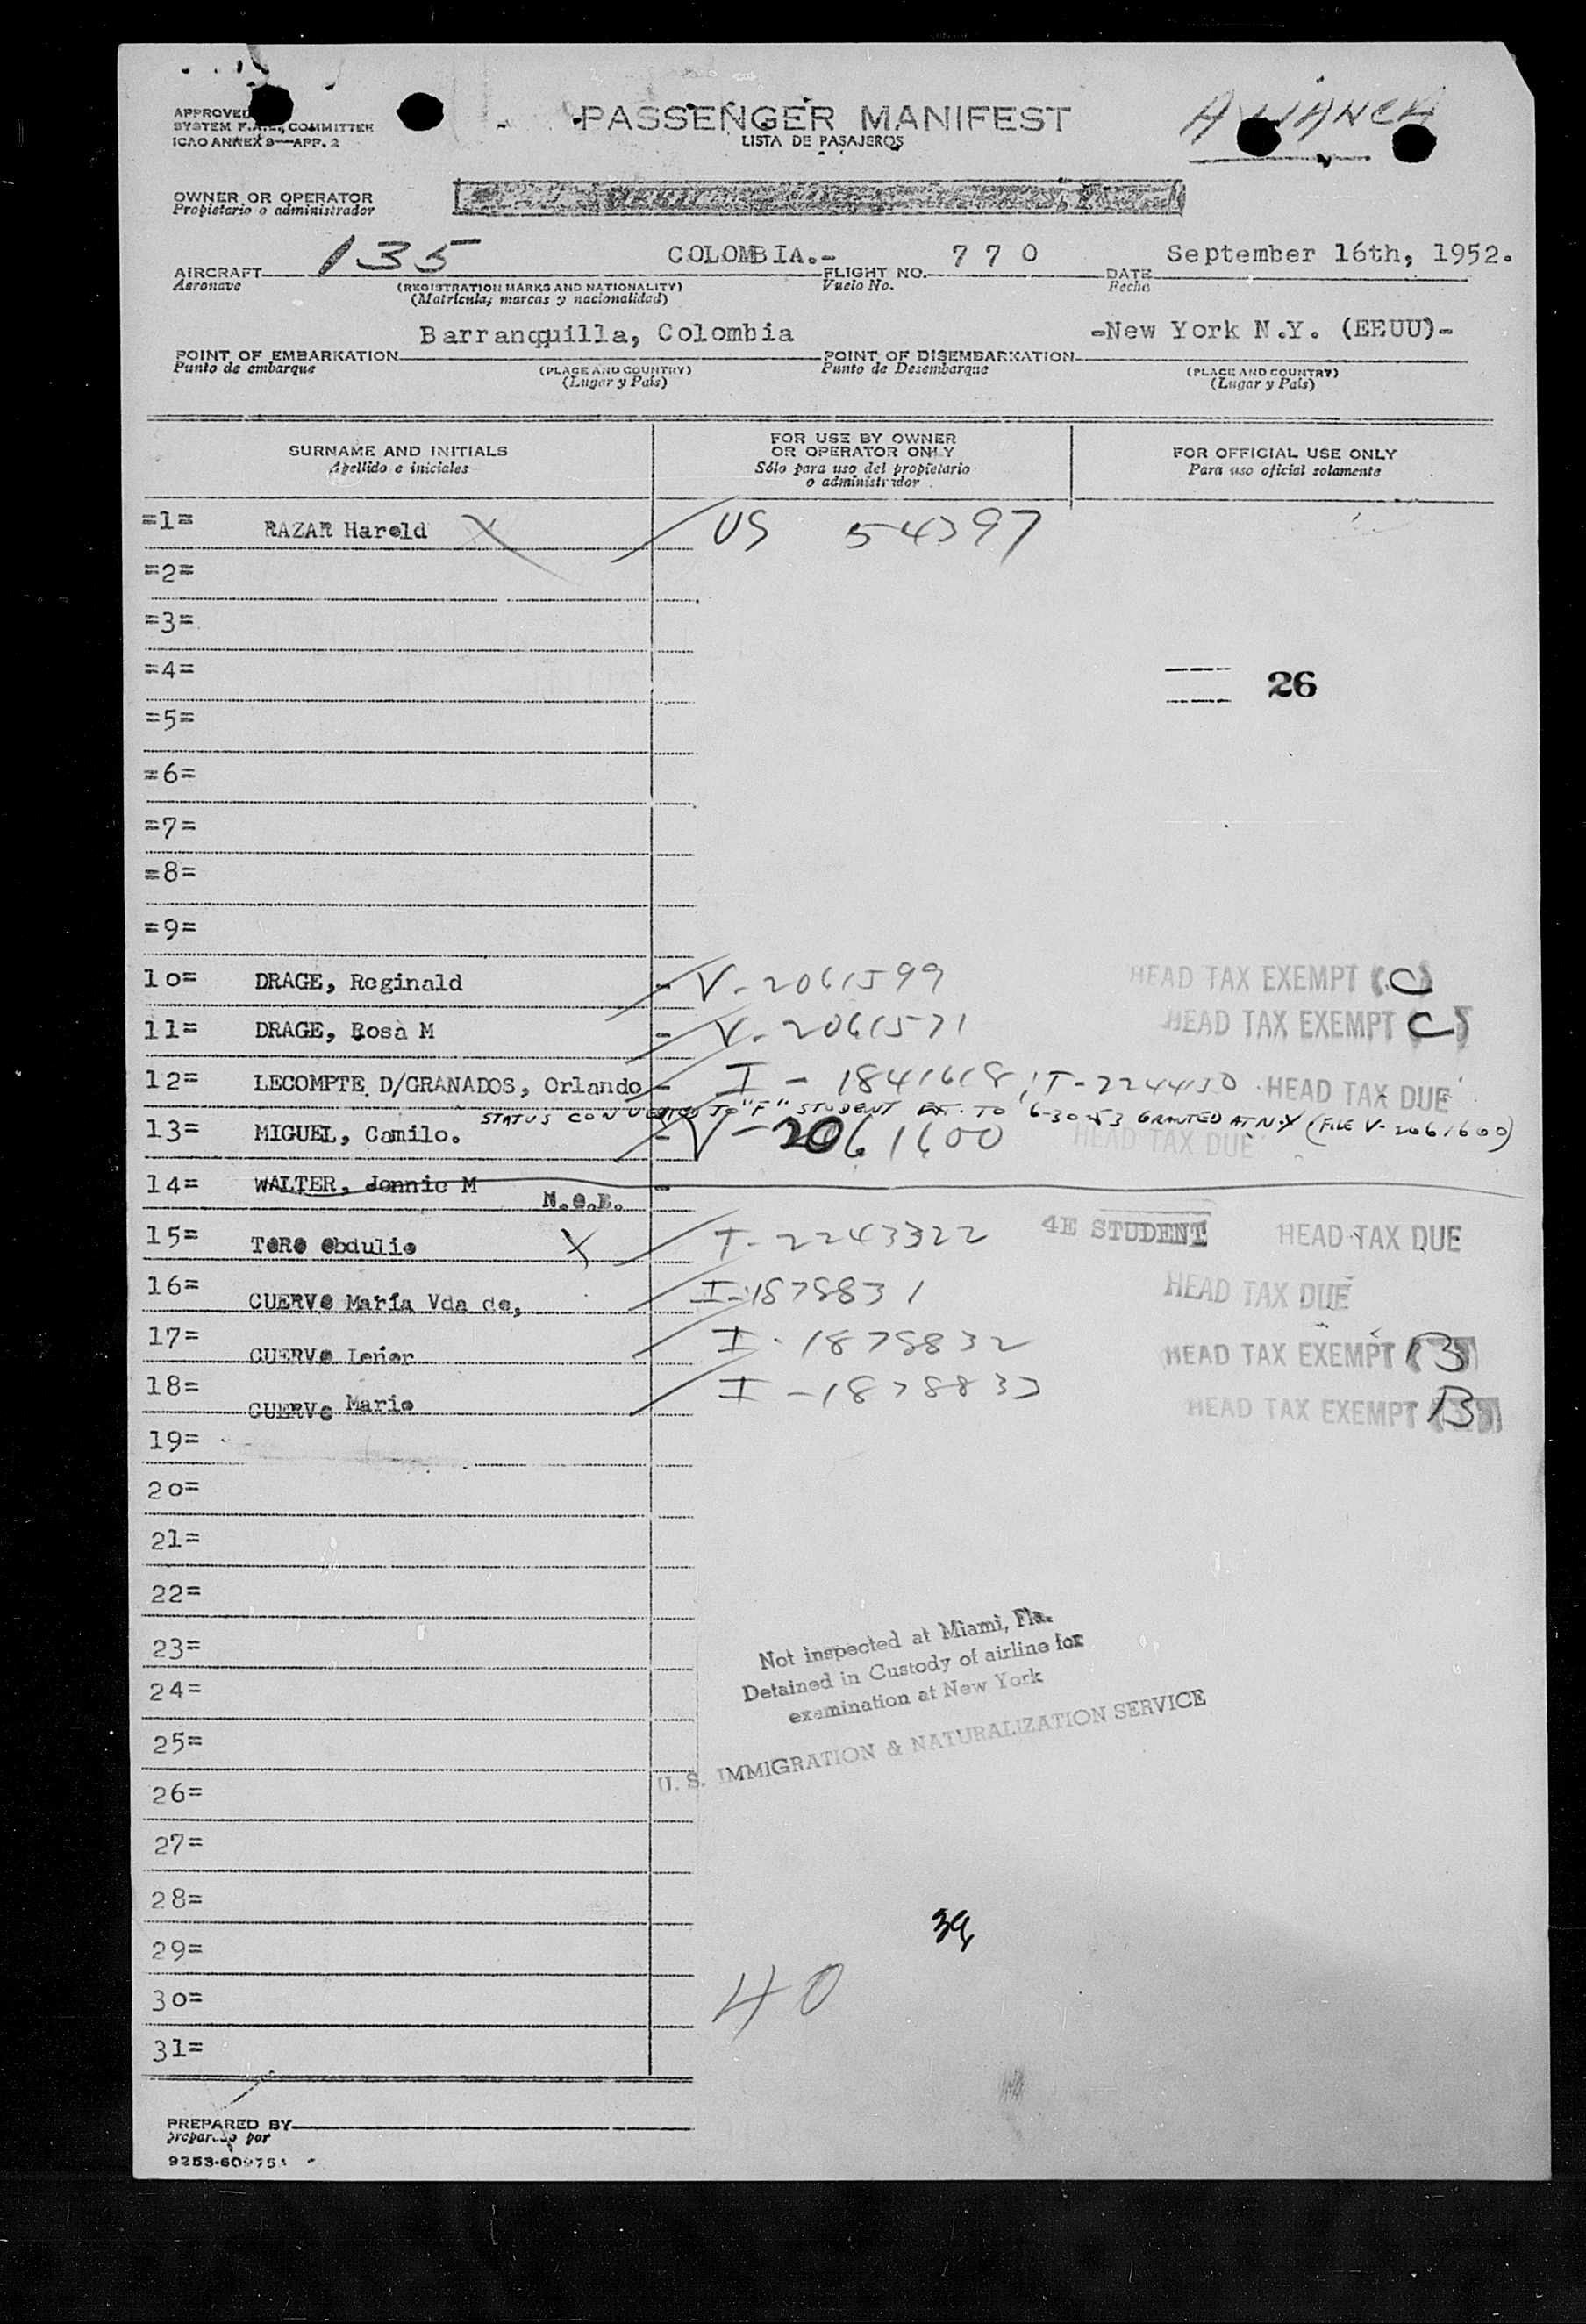 APPROVED
SYSTEM F.A.L. COMMITTEE
ICAO ANNEX 9—APP. 2
PASSENGER MANIFEST
LISTA DE PASAJEROS
AVIANCA
OWNER OR OPERATOR
Propietario o administrador
135 COLOMBIA.- 7 7 0 September 16th, 1952.
AIRCRAFT FLIGHT NO. DATE
Aeronave (REGISTRATION MARKS AND NATIONALITY) Vuelo No. Fecha
(Matrícula, marcas y nacionalidad)
Barranquilla, Colombia -New York N.Y. (EEUU)-
POINT OF EMBARKATION POINT OF DISEMBARKATION
Punto de embarque (PLACE AND COUNTRY) Punto de Desembarque (PLACE AND COUNTRY)
(Lugar y País) (Lugar y País)
SURNAME AND INITIALS FOR USE BY OWNER OR OPERATOR ONLY FOR OFFICIAL USE ONLY
Apellido e iniciales Sólo para uso del propietario o administrador Para uso oficial solamente
=1= RAZAR Harold X US 54397
=2=
=3=
=4= 26
=5=
=6=
=7=
=8=
=9=
10= DRAGE, Reginald - V-2061599 HEAD TAX EXEMPT (C)
11= DRAGE, Rosa M - V-2061571 HEAD TAX EXEMPT C
12= LECOMPTE D/GRANADOS, Orlando - I - 1841618; T-2244150 HEAD TAX DUE
STATUS CONVERTED TO "F" STUDENT EXT. TO 6-30-53 GRANTED AT N.Y (FILE V-2061600)
13= MIGUEL, Camilo. - V-2061600 HEAD TAX DUE
14= WALTER, Jennie M N.o.B. -
15= ToRo obdulio X T-2243322 4E STUDENT HEAD TAX DUE
16= CUERVo María Vda de, I-1878831 HEAD TAX DUE
17= CUERVo Lenor I-1878832 HEAD TAX EXEMPT (B)
18= CUERVo Mario I-1878833 HEAD TAX EXEMPT B
19=
20=
21=
22=
23=
24=
25=
26=
27=
28=
29=
30=
31=
Not inspected at Miami, Fla.
Detained in Custody of airline for
examination at New York
U. S. IMMIGRATION & NATURALIZATION SERVICE
39
40
PREPARED BY
preparado por